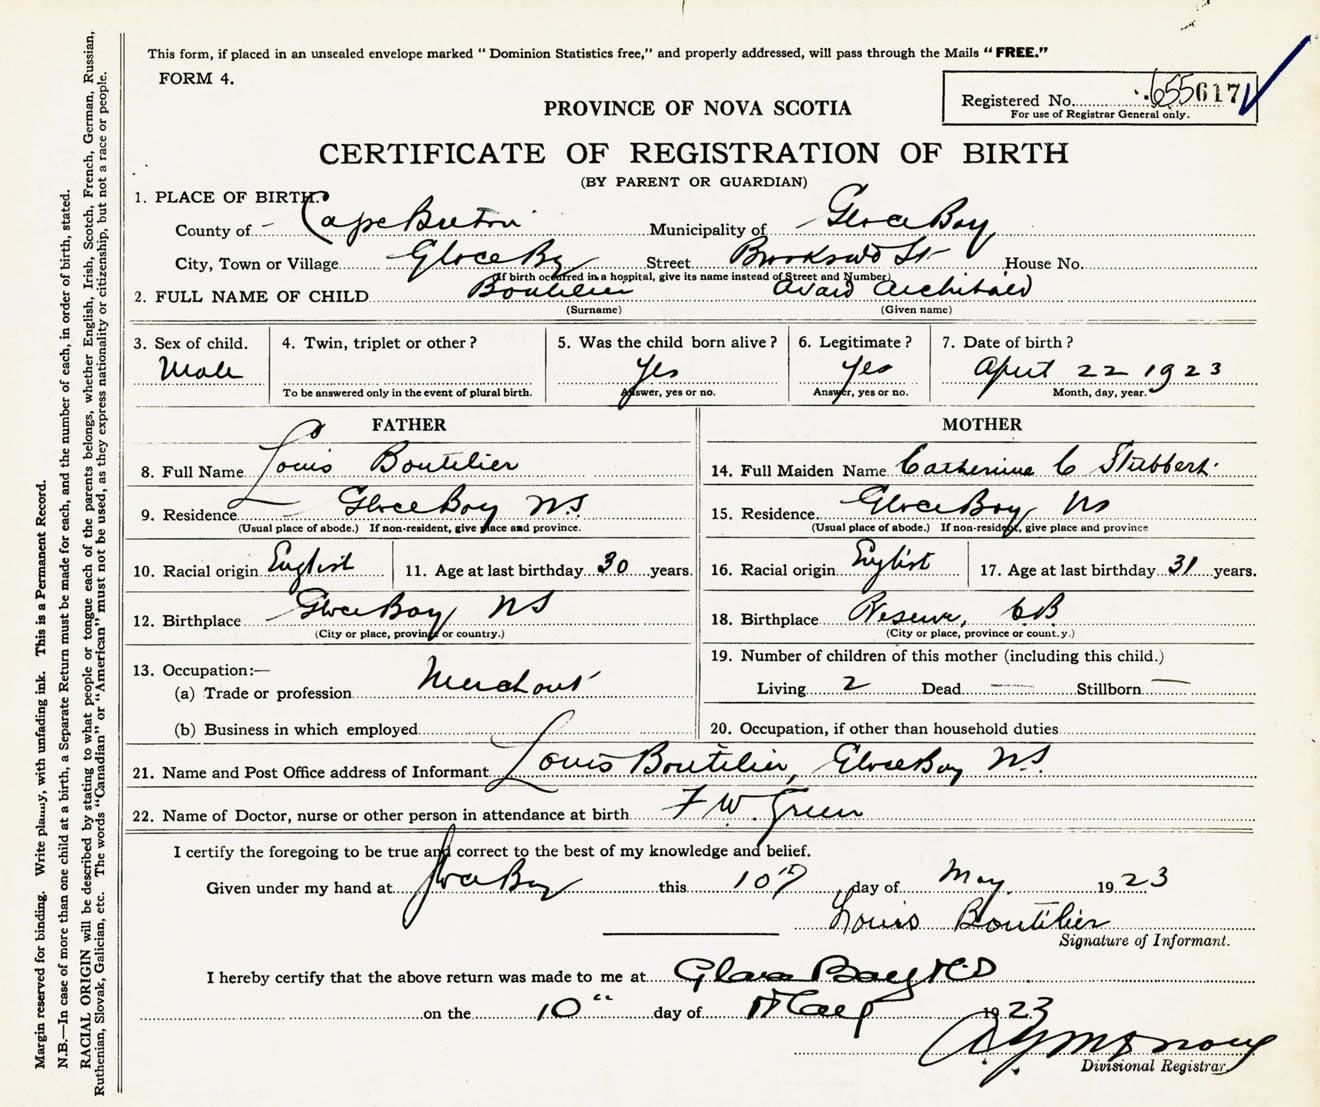 This form, if placed in an unsealed envelope marked “ Dominion Statistics free,” and properly addressed, will pass through the Mails “ FREE.”
FORM 4.
Registered No. 655617
For use of Registrar General only.
PROVINCE OF NOVA SCOTIA
CERTIFICATE OF REGISTRATION OF BIRTH
(BY PARENT OR GUARDIAN)
1. PLACE OF BIRTH:
County of - Cape Breton Municipality of Glace Bay
City, Town or Village Glace Bay Street St House No.
(If birth occurred in a hospital, give its name instead of Street and Number)
2. FULL NAME OF CHILD Boutilier Avard Archibald
(Surname) (Given name)
3. Sex of child. 4. Twin, triplet or other ? 5. Was the child born alive ? 6. Legitimate ? 7. Date of birth ?
Male Yes Yes April 22 1923
To be answered only in the event of plural birth. Answer, yes or no. Answer, yes or no. Month, day, year.
FATHER MOTHER
8. Full Name Louis Boutilier 14. Full Maiden Name Catherine C Stubbert.
9. Residence Glace Bay N.S. 15. Residence Glace Bay NS
(Usual place of abode.) If non-resident, give place and province. (Usual place of abode.) If non-resident, give place and province
10. Racial origin English 11. Age at last birthday 30 years. 16. Racial origin English 17. Age at last birthday 31 years.
12. Birthplace Glace Bay NS 18. Birthplace Reserve, C.B
(City or place, province or country.) (City or place, province or count.y.)
13. Occupation:— 19. Number of children of this mother (including this child.)
(a) Trade or profession Merchant Living 2 Dead — Stillborn —
(b) Business in which employed 20. Occupation, if other than household duties
21. Name and Post Office address of Informant Louis Boutilier, Glace Bay N.S.
22. Name of Doctor, nurse or other person in attendance at birth F W. Green
I certify the foregoing to be true and correct to the best of my knowledge and belief.
Given under my hand at Glace Bay this 10th day of May 1923
Louis Boutilier
Signature of Informant.
I hereby certify that the above return was made to me at Glace Bay N.S
on the 10" day of May 1923
Divisional Registrar
Margin reserved for binding. Write plainly, with unfading ink. This is a Permanent Record.
N.B.—In case of more than one child at a birth, a Separate Return must be made for each, and the number of each, in order of birth, stated.
RACIAL ORIGIN will be described by stating to what people or tongue each of the parents belongs, whether English, Irish, Scotch, French, German, Russian,
Ruthenian, Slovak, Galician, etc. The words “Canadian” or “American” must not be used, as they express nationality or citizenship, but not a race or people.